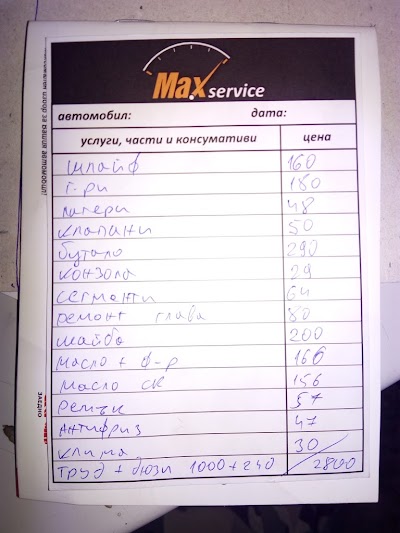 Max service
автомобил: дата:
услуги, части и консумативи цена
шлайф 160
г-ри 180
лагери 48
клапани 50
бутало 290
конзола 29
сегменти 64
ремонт глава 80
шайба 200
масло + ф-р 166
масло СК 156
ремък 57
Антифриз 47
клима 30
труд + дюзи 1000+240 2800